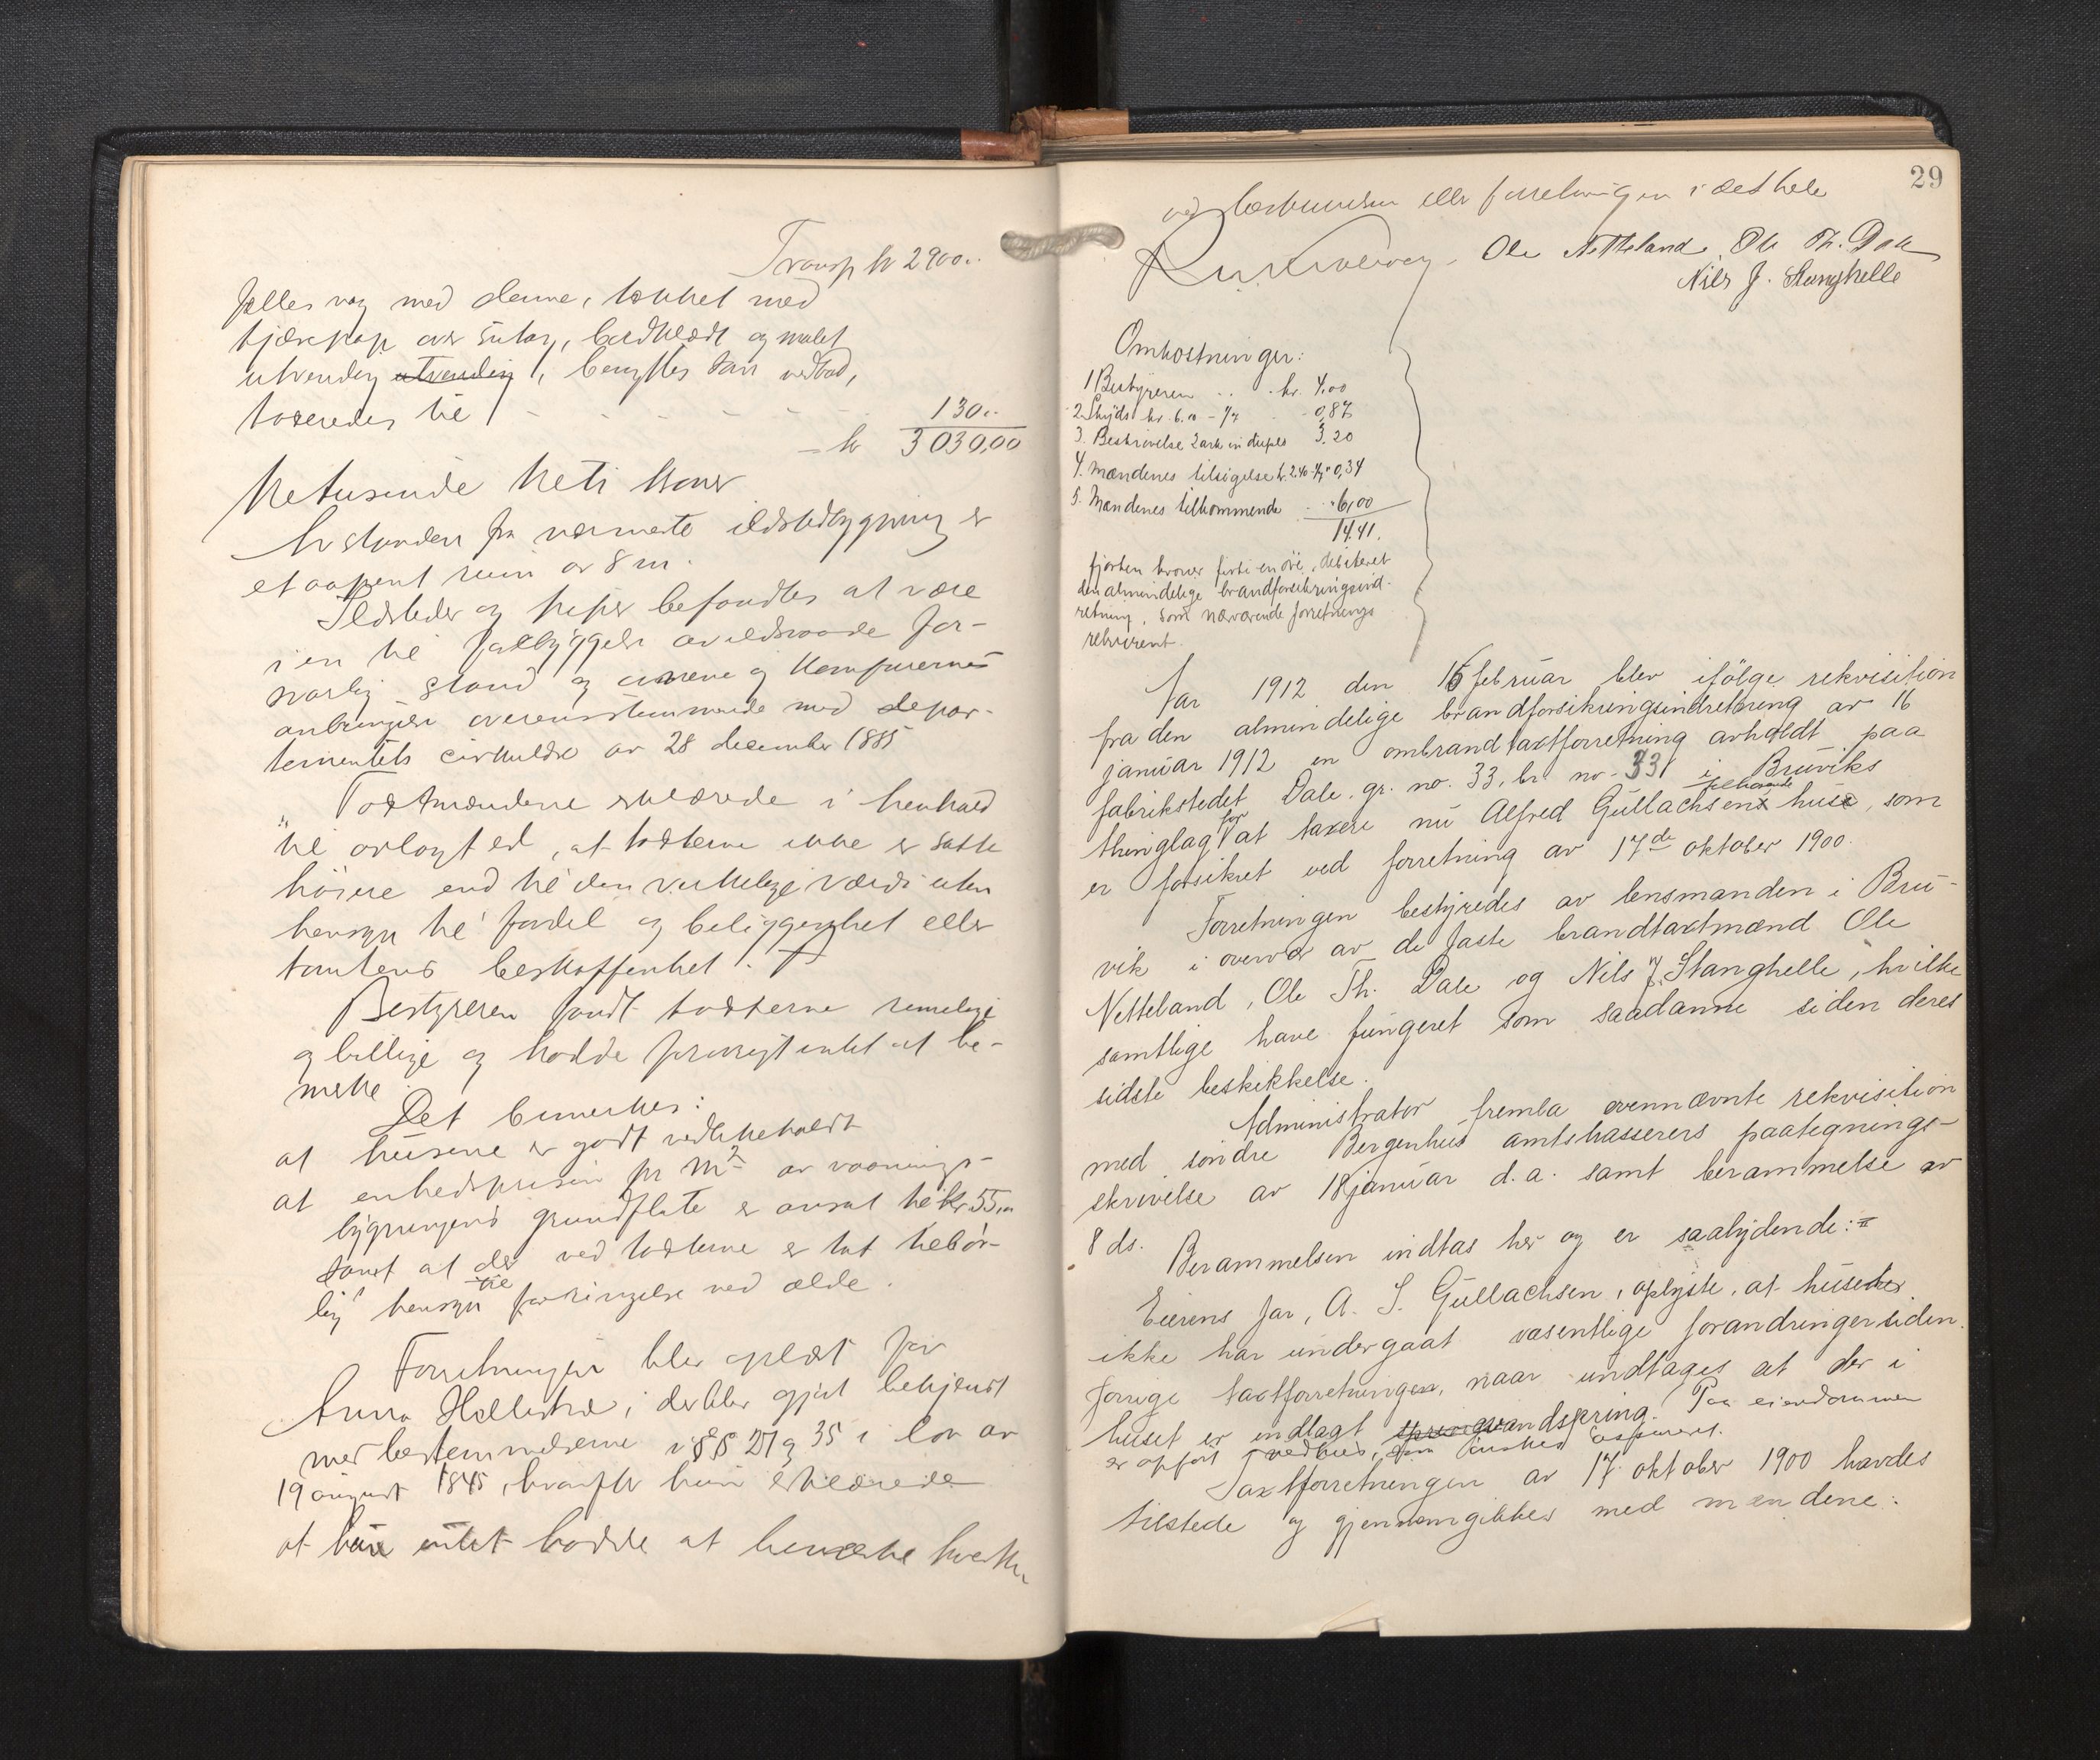 Transp kr 2900..
fælles væg med denne, tækket med
tjærepap over sutag, bordklædt og malet
utvendig utvendig, benyttes som vedbod,
takseredes til - - - - - 130..
- kr 3030,00
tretusinde treti kroner
Avstanden fra nærmeste ildstedbygning er
et aapent rum av 8 m.
Ildsteder og piper befandtes at være
i en til forebyggelse av ildsvaade for-
svarlig stand og ovnene og komfurernes
anbringelse overensstemmende med depar-
tementets cirkulære av 28 december 1885
Taxtmændene erklærede i henhold
til avlagt ed, at taxterne ikke er satte
høiere end til den virkelige værdi uten
hensyn til fordel og beliggenhet eller
tomtens beskaffenhet.
Bestyreren fandt taxterne rimelige
og billige og hadde forøvrigt intet at be-
merke.
Det bemerkes:
at husene er godt vedlikeholdt
at enhedsprisen pr m² av vaanings-
bygningens grundflate er ansat til kr 55,00
samt at der ved taxterne er tat tilbør-
lig hensyn til forringelse ved ælde.
Forretningen blev oplæst for
Anna Hellestræ, der blev gjort bekjendt
med bestemmelserne i §§ 27 og 35 i lov av
19 august 1845, hvorefter hun erklærede
at hun intet hadde at bemerke hverken
29
ved beskrivelsen eller forretningen i det hele
Ole Netteland. Ole Th. Dale
Nils J. Stanghelle
Omkostninger:
1 Bestyreren .. . kr. 4,00
2. Skyds kr. 6.10 - 1/7 - 0,87
3. Beskrivelse 2 ark in duplo 3.20
4. Mændenes tilsigelse kr. 2.40 - 1/7 " 0,34
5. Mændenes tilkommende . " 6,00
14,41.
fjorten kroner firti en øre, debiteret
den almindelige brandforsikringsind-
retning, som nærværende forretnings
rekvirent.
Aar 1912 den 15 februar blev ifølge rekvisition
fra den almindelige brandforsikringsindretning av 16
januar 1912 en ombrandtaxtforretning avholdt paa
fabrikstedet Dale. gr. no. 33, br. no. 331 i Bruviks
thinglag for at taxere nu Alfred Gullachsen tilhørende huse, som
er forsikret ved forretning av 17de oktober 1900.
Forretningen bestyredes av lensmanden i Bru-
vik i overvær av de faste brandtaxtmænd Ole
Netteland, Ole Th. Dale og Nils J. Stanghelle, hvilke
samtlige have fungeret som saadanne siden deres
sidste beskikkelse.
Administrator fremla ovennævnte rekvisition
med søndre Bergenhus amtskasserers paategnings-
skrivelse av 18 januar d.a. samt berammelse av
8 ds.
Berammelsen indtas her og er saalydende:
Eierens far, A. S. Gullachsen, oplyste, at husene
ikke har undergaat væsentlige forandringer siden
forrige taxtforretningen, naar undtages at der i
huset er indlagt vandspring. Paa eiendommen
er opført vedhus, som ønskes assureret.
Taxtforretningen av 17 oktober 1900 havdes
tilstede og gjennemgikkes med mændene: